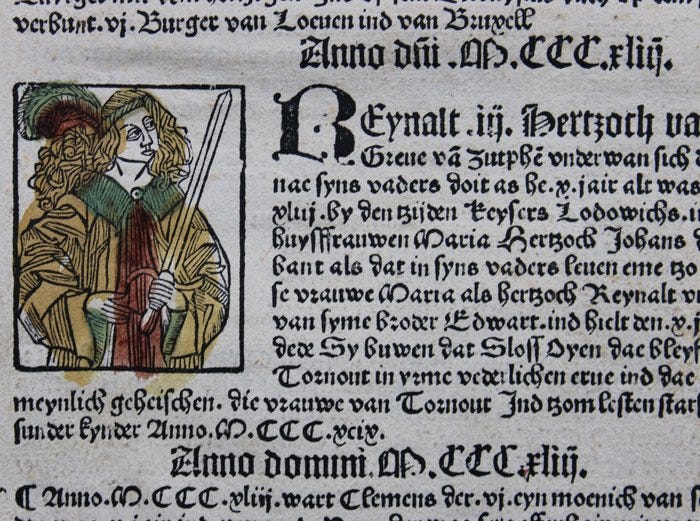 verbunt. vj. Burger van Loeuen ind van Bruxell
Anno dñi .M.CCC.xliij.
REynalt .iij. Hertzoch va
Greue vã Zutphẽ vnderwan sich d
nae syns vaders doit as he .x. jair alt was
xliij. by den tzijden Keysers Lodowichs. i
huysffrauwen Maria Hertzoch Johans d
bant als dat in syns vaders leuen eme tzo
se vrauwe Maria als hertzoch Reynalt v
van syme broder Edwart. ind hielt den .x. j
dede Sy buwen dat Sloss Oyen dae bleyf
Tornout in yrme vederlichen erue ind dae
meynlich geheischen. die vrauwe van Tornout Ind tzom lesten starf
sunder kynder Anno. M.CCC.xcix.
Anno domini .M.CCC.xliij.
¶ Anno. M.CCC.xliij. wart Clemens der. vj. eyn moenich van s